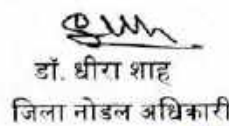 डॉ. धीरा शाह
जिला नोडल अधिकारी